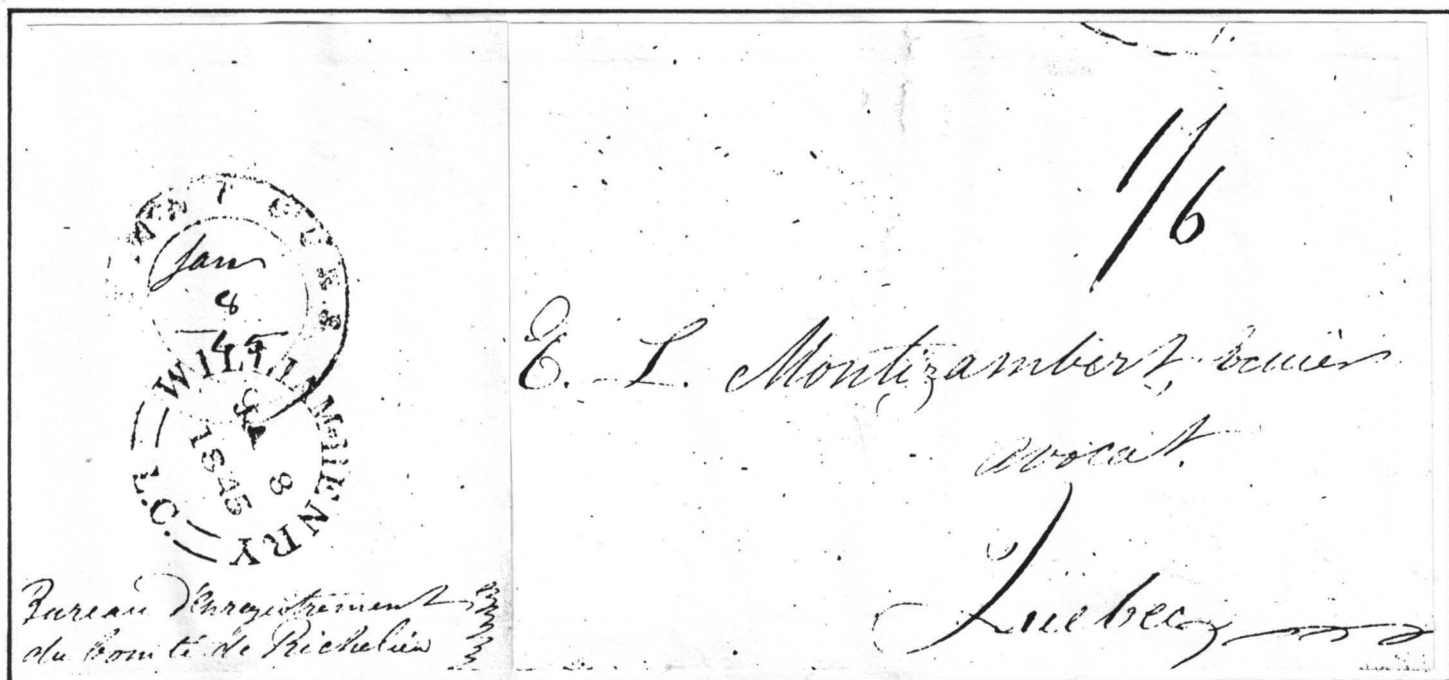 Jan
8
45
WILLIAM-HENRY
L.C.
JA 8
1845
Bureau d'Enregistrement
du Comté de Richelieu
1/6
E. L. Montizambert, Ecuier
avocat.
Québec